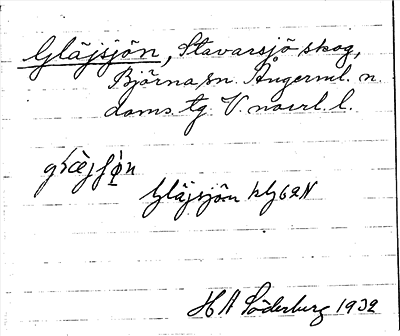 Gläjsjön, Stavarsjö skog,
Björna sn. Ångerml. n.
doms. tg. V. norrl. l.
Gläjsjön
H A Söderberg 1932